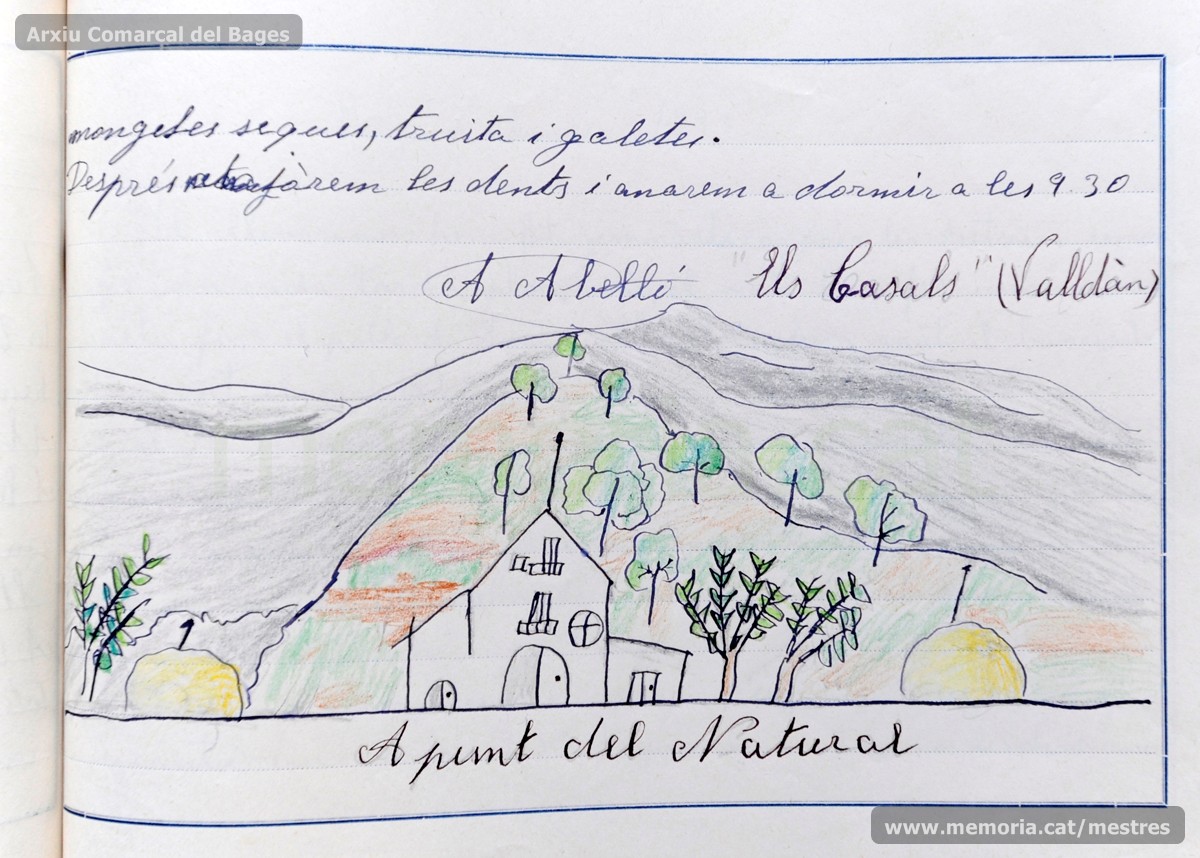 Arxiu Comarcal del Bages
mongetes seques, truita i galetes.
Després jàrem les dents i anarem a dormir a les 9 30
A Abelló "Els Casals" (Valldàn)
Apunt del Natural
www.memoria.cat/mestres